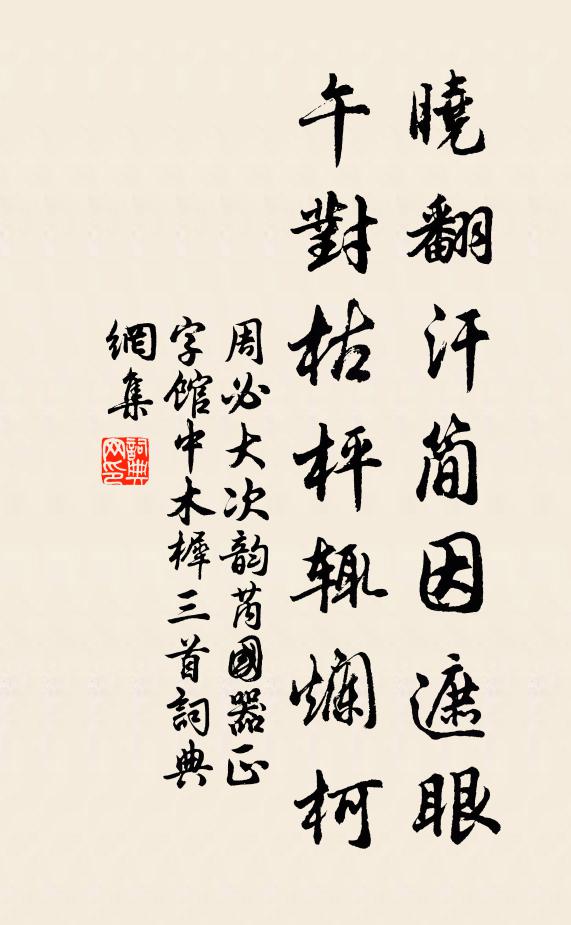 曉翻汗簡因遮眼
午對枯枰輒爛柯
周必大次韵芮國器正
字館中木樨三首詞典
網集
詞典
网印